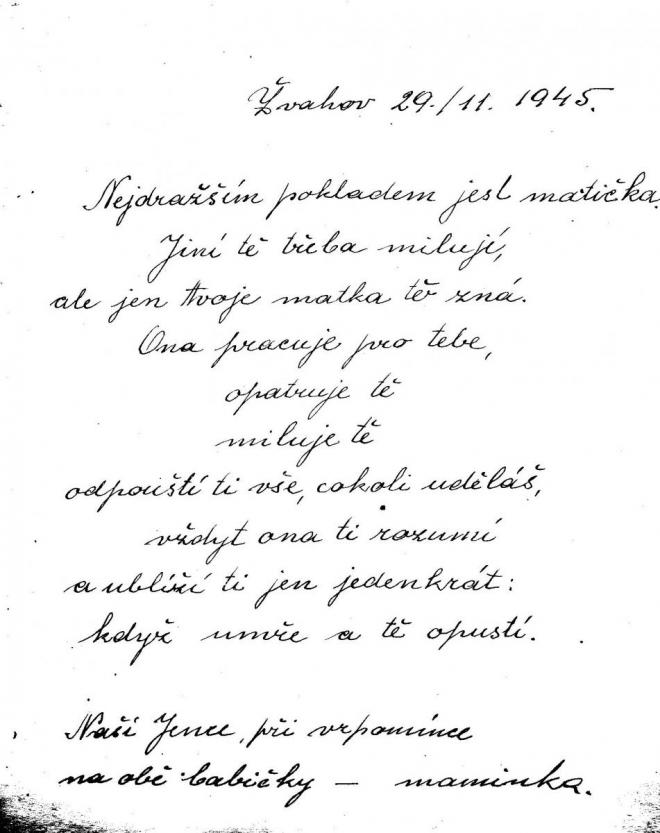 Žvahov 29./11. 1945.
Nejdražším pokladem jest matička.
Jiní tě třeba milují,
ale jen tvoje matka tě zná.
Ona pracuje pro tebe,
opatruje tě
miluje tě
odpouští ti vše, cokoli uděláš,
vždyt ona ti rozumí
a ublíží ti jen jedenkrát:
když umře a tě opustí.
Naší Jence, při vzpomínce
na obě babičky — maminka.